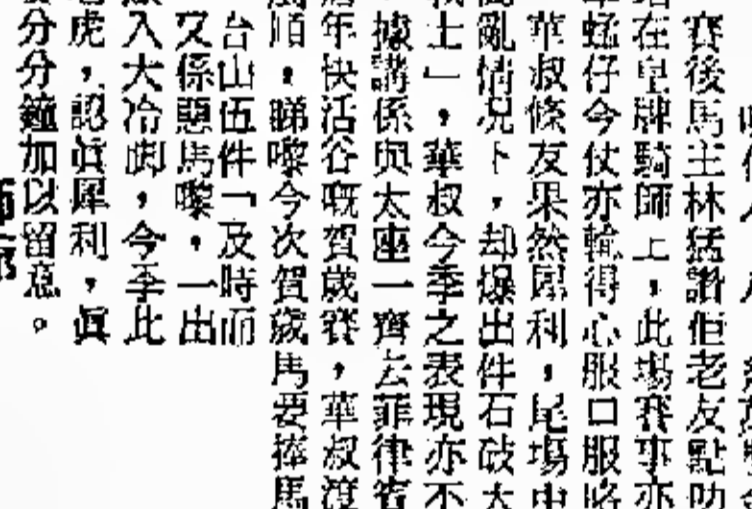 賽後馬主林猛讚佢老友點助
在皇牌騎師上，此場賽事亦
蜢仔今仗亦輸得心服口服咯
華叔條友果然犀利，尾場由
亂情况下，却爆出件石破大
士」，華叔今季之表現亦不
據講係與太座一齊去菲律賓
年快活谷嘅賀歲賽，華叔渡
順，睇嚟今次賀歲馬要捧馬
台山伍件「及時而
又係惡馬嚟，一出
入大冷脚，今季此
虎，認眞犀利，眞
分分鐘加以留意。